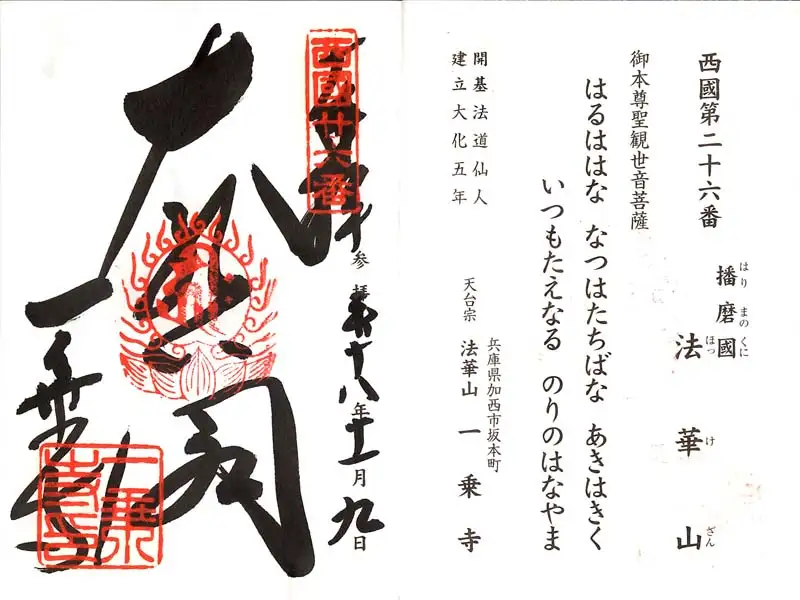 西國第二十六番
はり まの くに
播磨國
ほっ け ざん
法華山
御本尊聖観世音菩薩
はるははな なつはたちばな あきはきく
いつもたえなる のりのはなやま
開基法道仙人
建立大化五年
兵庫県加西市坂本町
天台宗 法華山 一乗寺
西國廿六番
参拝 平成十八年十一月九日
大悲閣
一乗寺
一乗寺